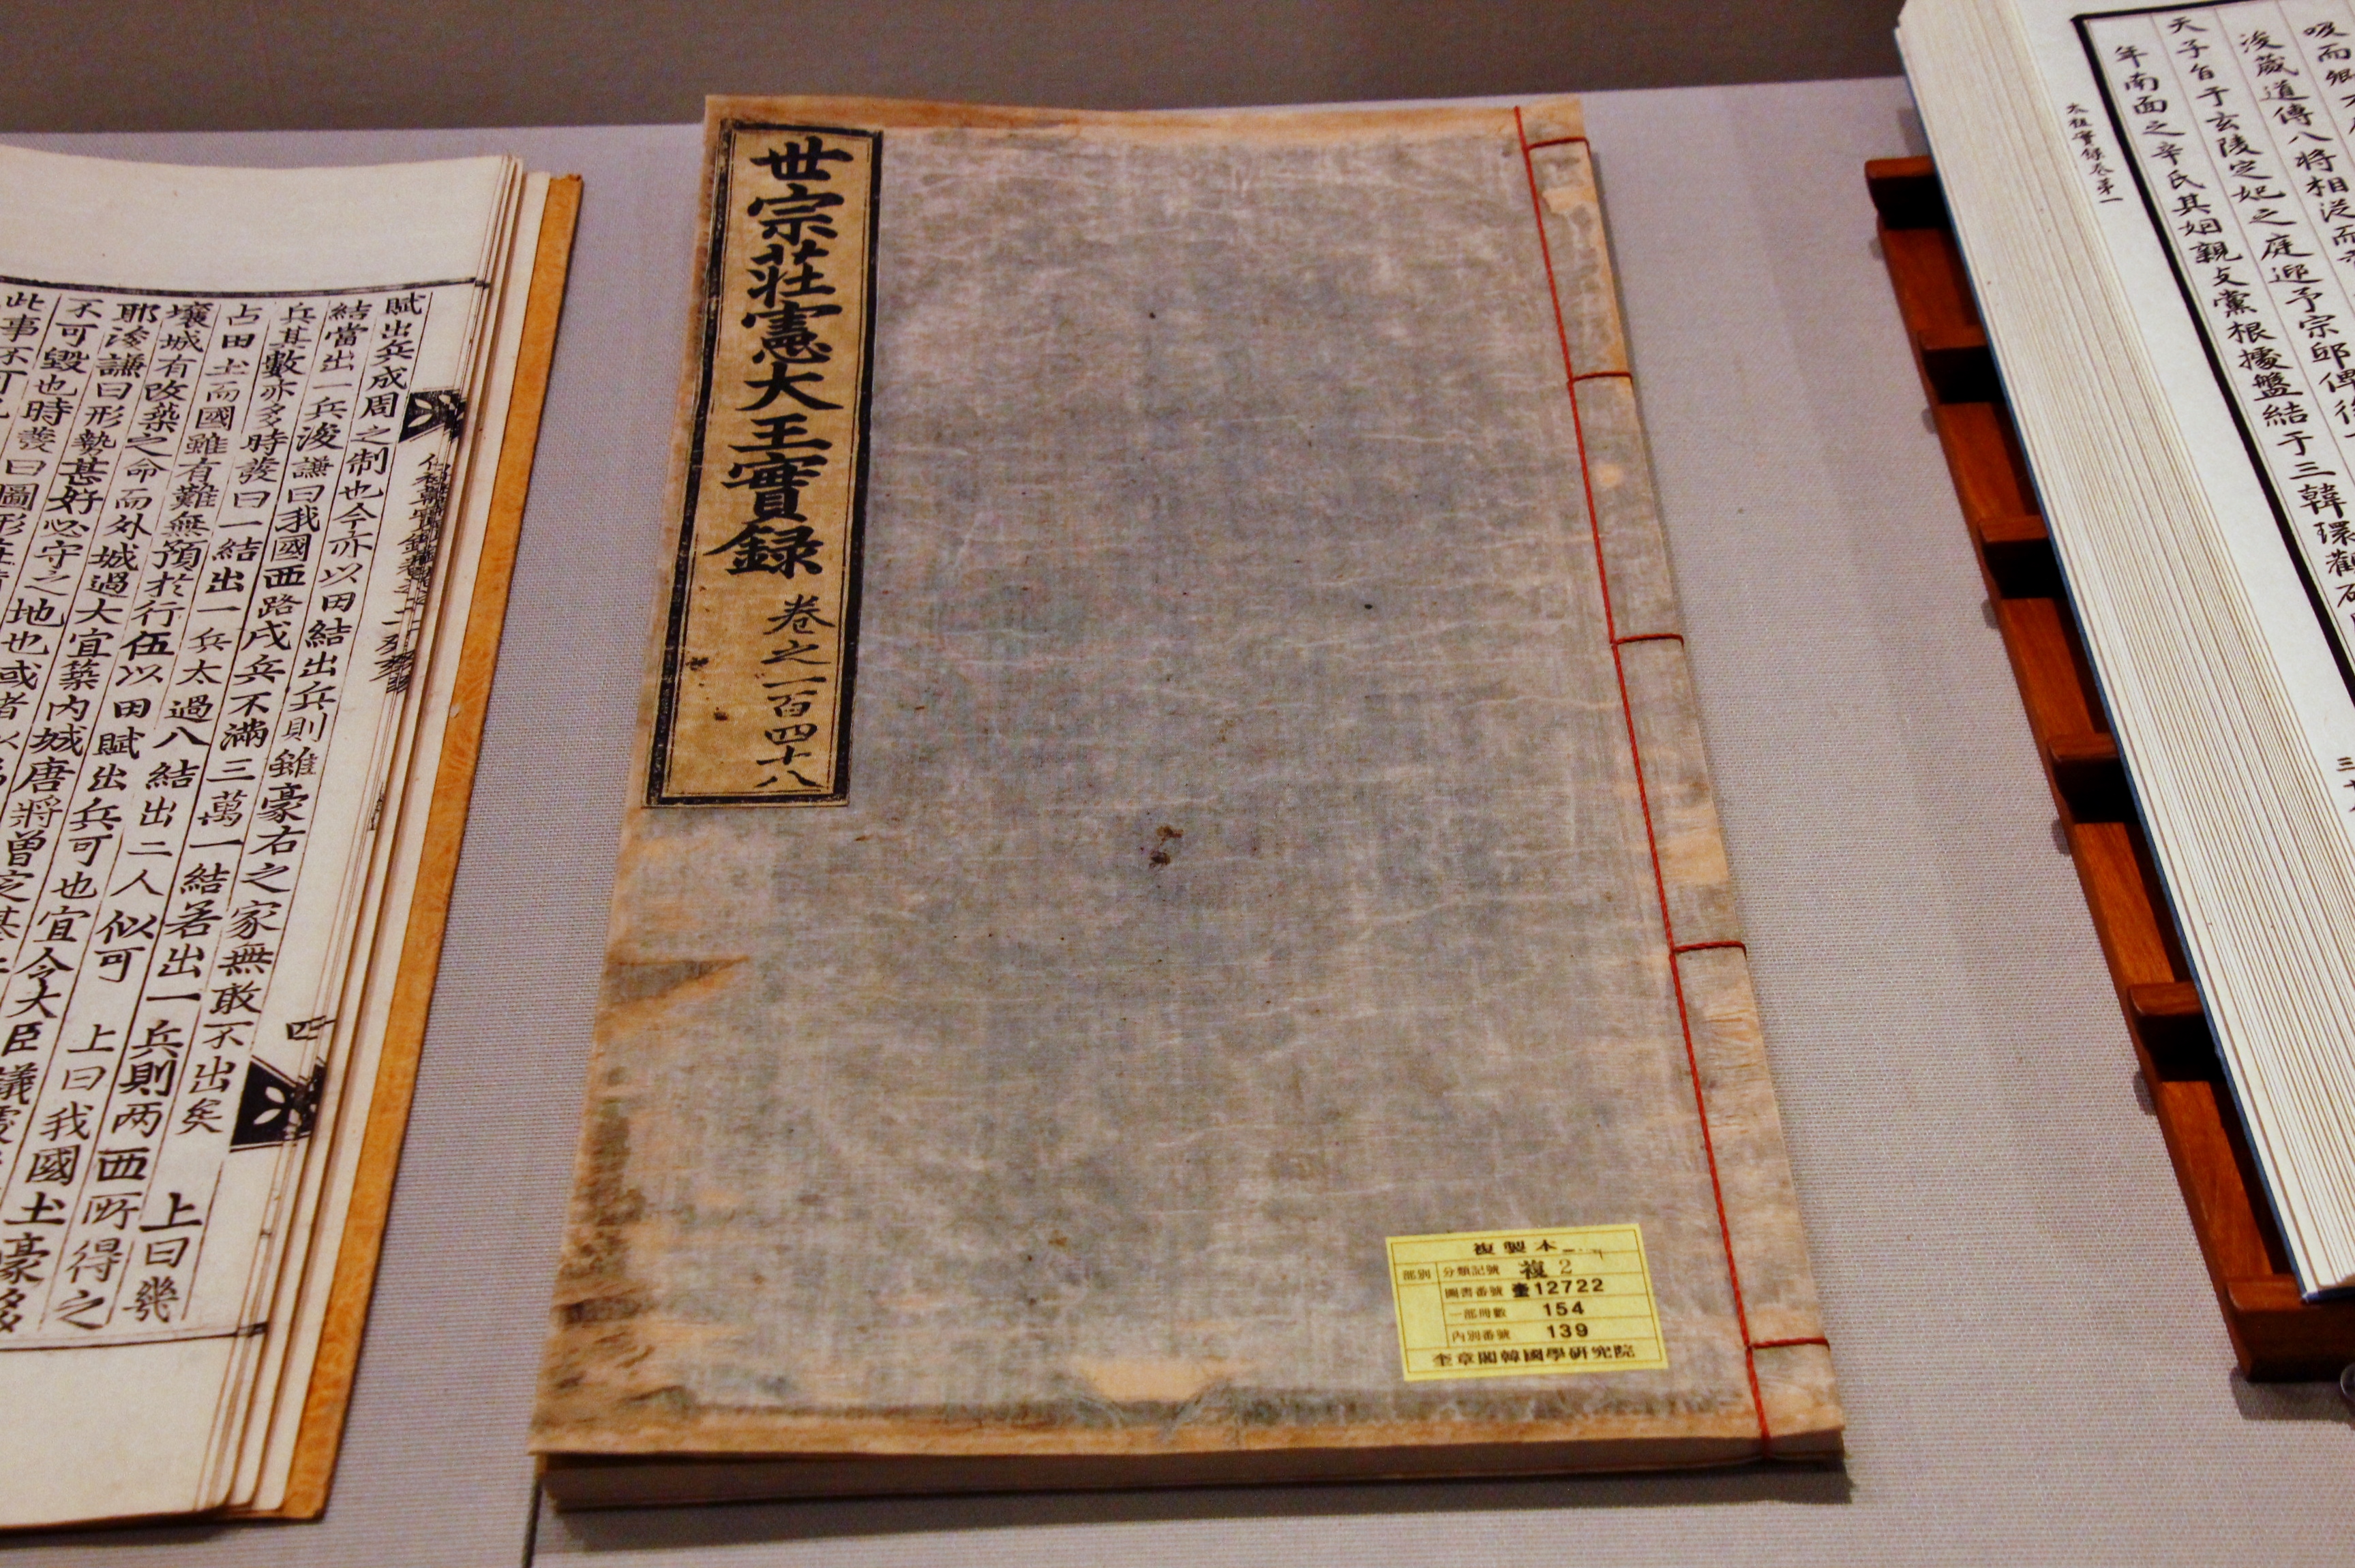 世宗莊憲大王實錄
卷之一百四十八
複製本
部別
分類記號 複2
圖書番號 奎12722
一部冊數 154
內別番號 139
奎章閣韓國學研究院
賦出兵成周之制也今亦以田結出兵則雖豪右之家無敢不出矣 上曰幾
結當出一兵浚謙曰我國西路戍兵不滿三萬一結若出一兵則两西所得之
兵其數亦多時發曰一結出一兵太過八結出二人似可 上曰我國土豪
占田土而國雖有難無預於行伍以田賦出兵可也宜令大臣議
壤城有改築之命而外城過大宜築內城唐將曾
耶浚謙曰形勢甚好必守之地也或者
不可毀也時發曰圖形
此事不可
四
吸而
浚葳道傳八將相泛而
天子自于玄陵定妃之庭迎予宗邸俾
年南面之辛氏其姻親支黨根據盤結于三韓環
太祖實錄卷第一